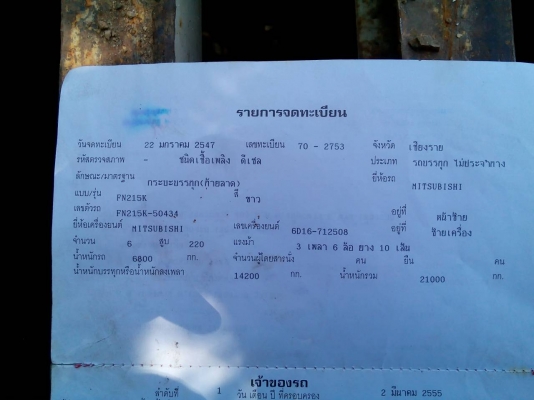 รายการจดทะเบียน
วันจดทะเบียน 22 มกราคม 2547 เลขทะเบียน 70 - 2753 จังหวัด เชียงราย
รหัสตรวจสภาพ - ชนิดเชื้อเพลิง ดีเซล ประเภท รถบรรทุก ไม่ประจำทาง
ลักษณะ/มาตรฐาน กระบะบรรทุก(ท้ายลาด) ยี่ห้อรถ MITSUBISHI
แบบ/รุ่น FN215K สี ขาว
เลขตัวรถ FN215K-50434 อยู่ที่ คผ้าซ้าย
ยี่ห้อเครื่องยนต์ MITSUBISHI เลขเครื่องยนต์ 6D16-712508 อยู่ที่ ซ้ายเครื่อง
จำนวน 6 สูบ 220 แรงม้า 3 เพลา 6 ล้อ ยาง 10 เส้น
น้ำหนักรถ 6800 กก. จำนวนผู้โดยสารนั่ง คน ยืน คน
น้ำหนักบรรทุกหรือน้ำหนักลงเพลา 14200 กก. น้ำหนักรวม 21000 กก.
เจ้าของรถ
ลำดับที่ 1 วัน เดือน ปี ที่ครอบครอง 2 มีนาคม 2555